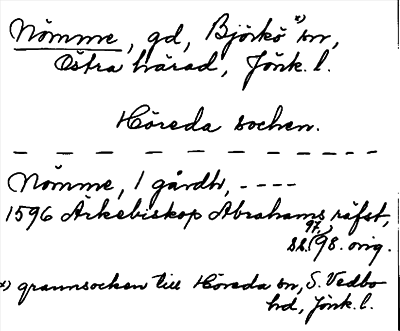 Nömme, gd, Björkö x) sn,
Östra härad, Jönk. l.
Höreda socken.
— — — — — — — — — — —
Nömme, 1 gårdtr, ----
1596 Ärkebiskop Abrahams räfst,
97,
s. 98. orig.
x) grannsocken till Höreda sn, S. Vedbo
hd, Jönk. l.